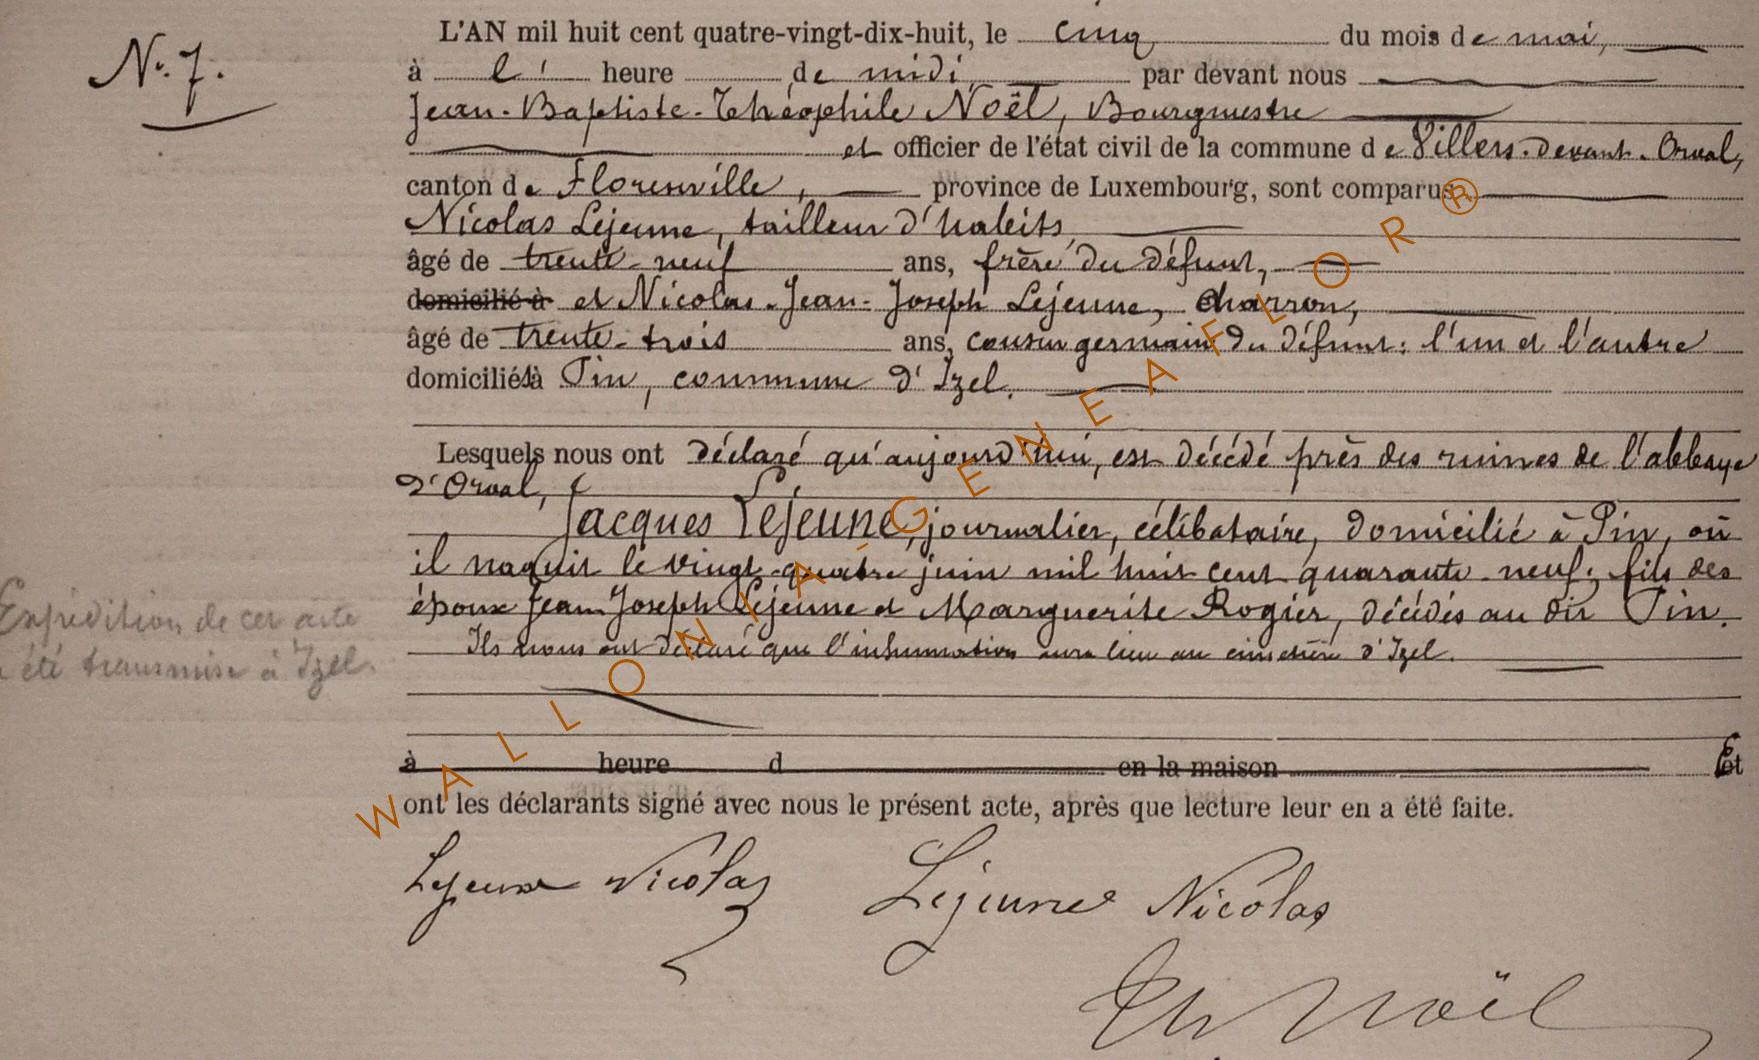 N.º 7.
L'AN mil huit cent quatre-vingt-dix-huit, le cinq du mois de mai,
à l' heure de midi par devant nous
Jean-Baptiste-Théophile Noël, Bourgmestre
et officier de l'état civil de la commune de Villers-devant-Orval,
canton de Florenville, province de Luxembourg, sont comparus
Nicolas Lejeune, tailleur d'habits
âgé de trente-neuf ans, frère du défunt,
domicilié à et Nicolas-Jean-Joseph Lejeune, charron,
âgé de trente-trois ans, cousin germain du défunt: l'un et l'autre
domiciliés à Pin, commune d'Izel.
Lesquels nous ont déclaré qu'aujourd'hui, est décédé près des ruines de l'abbaye
d'Orval,
Jacques Lejeune, journalier, célibataire, domicilié à Pin, où
il naquit le vingt-quatre juin mil huit cent quarante-neuf; fils des
époux Jean Joseph Lejeune et Marguerite Rogier, décédés au dit Pin.
Ils nous ont déclaré que l'inhumation aura lieu au cimetière d'Izel.
Expédition de cet acte
a été transmise à Izel.
à heure d en la maison Et
ont les déclarants signé avec nous le présent acte, après que lecture leur en a été faite.
Lejeune Nicolas Lejeune Nicolas
Th Noël
WALLONIA.GENEAFLOR®